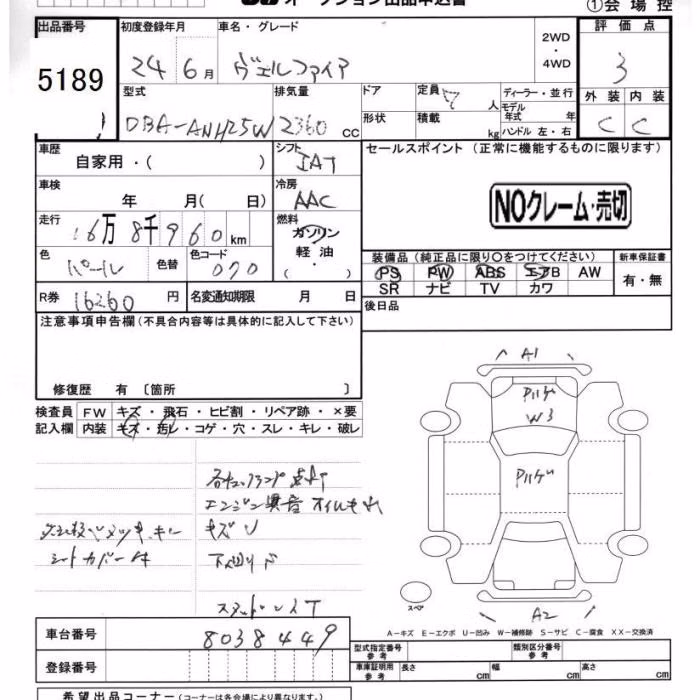 オークション出品申込書
①会場控
出品番号
5189
初度登録年月
24 6月
車名・グレード
ヴェルファイア
2WD
・
4WD
評価点
3
外装 内装
C C
型式
DBA-ANH25W
排気量
2360 CC
ドア
形状
定員 7 人
積載 kg
ディーラー・並行
モデル年式 年
ハンドル 左・右
車歴
自家用・( )
シフト
IAT
セールスポイント (正常に機能するものに限ります)
NOクレーム・売切
車検
年 月( 日)
冷房
AAC
走行
16万 8千960km
燃料
ガソリン
軽油
( ・ )
色
パール
色替
色コード
070
装備品 (純正品に限り○をつけてください)
PS PW ABS エアB AW
SR ナビ TV カワ
新車保証書
有・無
R券 16260 円
名変通知期限 月 日
後日品
注意事項申告欄 (不具合内容等は具体的に記入して下さい)
修復歴 有 〔箇所 〕
検査員 FW キズ・飛石・ヒビ割・リペア跡・×要
記入欄 内装 キズ・汚レ・コゲ・穴・スレ・キレ・破レ
各チェックランプ点灯
エンジン異音 オイルもれ
キズ U
シートカバー付
下回りサビ
A1
Pハゲ
W3
Pハゲ
A2
スペア
A-キズ E-エクボ U-凹み W-補修跡 S-サビ C-腐食 XX-交換済
車台番号
8038449
登録番号
型式指定番号 参考
類別区分番号 参考
車庫証明用 参考
長さ cm
幅 cm
高さ cm
希望出品コーナー (コーナーは各会場により異なります。)